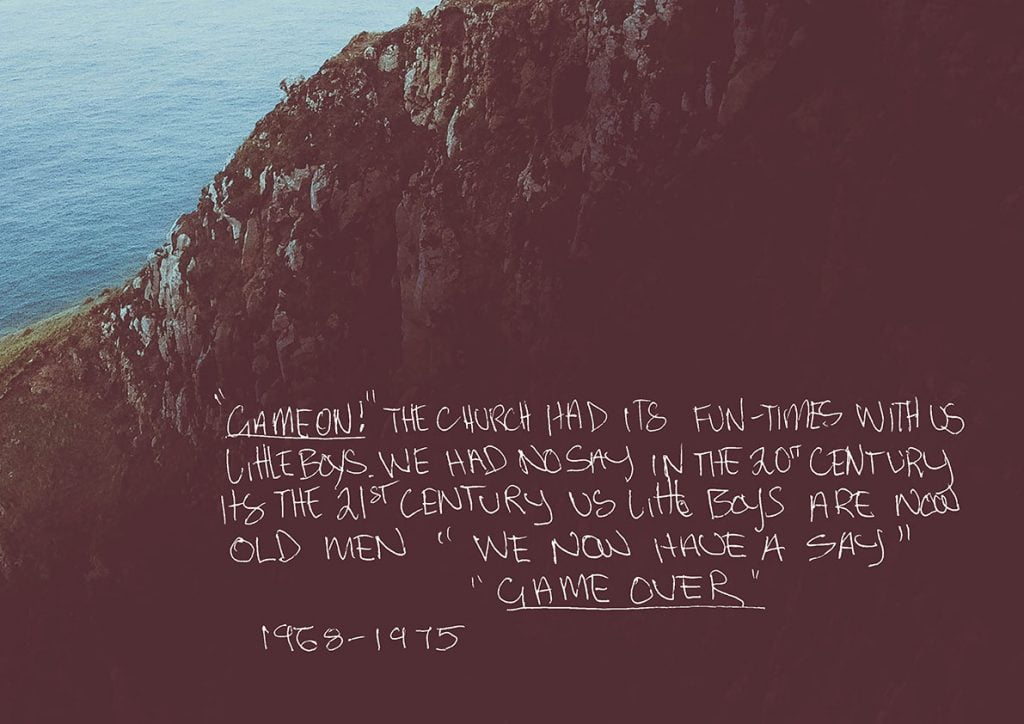 "GAME ON!" THE CHURCH HAD ITS FUN-TIMES WITH US
LITTLE BOYS. WE HAD NO SAY IN THE 20T CENTURY
ITS THE 21ST CENTURY US LITTLE BOYS ARE NOW
OLD MEN " WE NOW HAVE A SAY"
"GAME OVER"
1968-1975